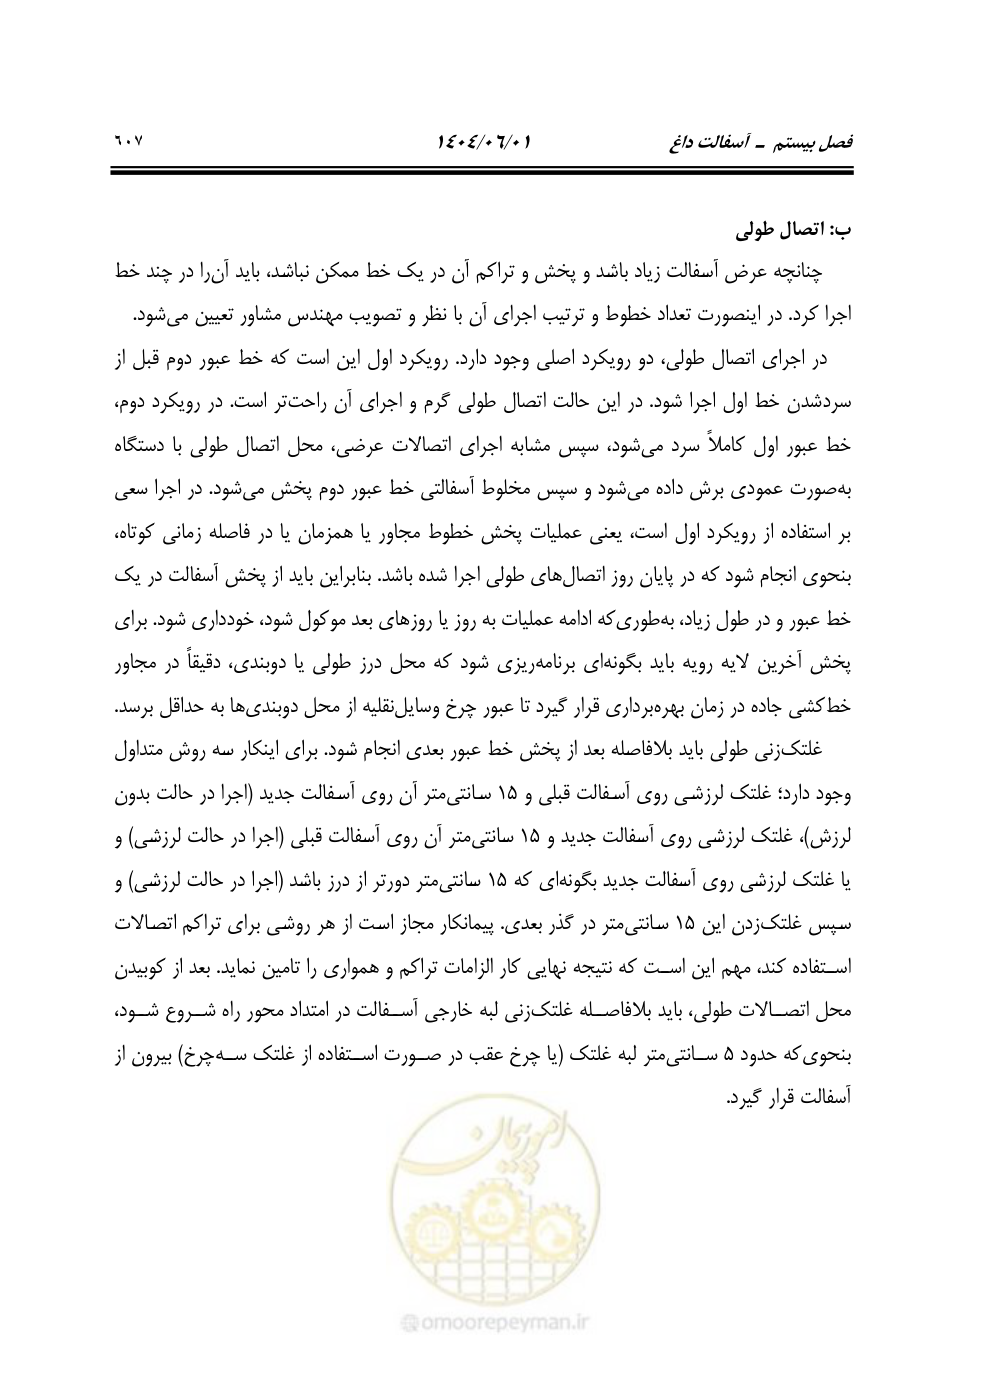 فصل بیستم ـ آسفالت داغ ۱۴۰۴/۰۶/۰۱ ۶۰۷
ب: اتصال طولی
چنانچه عرض آسفالت زیاد باشد و پخش و تراکم آن در یک خط ممکن نباشد، باید آن‌را در چند خط
اجرا کرد. در اینصورت تعداد خطوط و ترتیب اجرای آن با نظر و تصویب مهندس مشاور تعیین می‌شود.
در اجرای اتصال طولی، دو رویکرد اصلی وجود دارد. رویکرد اول این است که خط عبور دوم قبل از
سردشدن خط اول اجرا شود. در این حالت اتصال طولی گرم و اجرای آن راحت‌تر است. در رویکرد دوم،
خط عبور اول کاملاً سرد می‌شود، سپس مشابه اجرای اتصالات عرضی، محل اتصال طولی با دستگاه
به‌صورت عمودی برش داده می‌شود و سپس مخلوط آسفالتی خط عبور دوم پخش می‌شود. در اجرا سعی
بر استفاده از رویکرد اول است، یعنی عملیات پخش خطوط مجاور یا همزمان یا در فاصله زمانی کوتاه،
بنحوی انجام شود که در پایان روز اتصال‌های طولی اجرا شده باشد. بنابراین باید از پخش آسفالت در یک
خط عبور و در طول زیاد، به‌طوری‌که ادامه عملیات به روز یا روزهای بعد موکول شود، خودداری شود. برای
پخش آخرین لایه رویه باید بگونه‌ای برنامه‌ریزی شود که محل درز طولی یا دوبندی، دقیقاً در مجاور
خط‌کشی جاده در زمان بهره‌برداری قرار گیرد تا عبور چرخ وسایل‌نقلیه از محل دوبندی‌ها به حداقل برسد.
غلتک‌زنی طولی باید بلافاصله بعد از پخش خط عبور بعدی انجام شود. برای اینکار سه روش متداول
وجود دارد؛ غلتک لرزشی روی آسفالت قبلی و ۱۵ سانتی‌متر آن روی آسفالت جدید (اجرا در حالت بدون
لرزش)، غلتک لرزشی روی آسفالت جدید و ۱۵ سانتی‌متر آن روی آسفالت قبلی (اجرا در حالت لرزشی) و
یا غلتک لرزشی روی آسفالت جدید بگونه‌ای که ۱۵ سانتی‌متر دورتر از درز باشد (اجرا در حالت لرزشی) و
سپس غلتک‌زدن این ۱۵ سانتی‌متر در گذر بعدی. پیمانکار مجاز است از هر روشی برای تراکم اتصالات
استفاده کند، مهم این است که نتیجه نهایی کار الزامات تراکم و همواری را تامین نماید. بعد از کوبیدن
محل اتصالات طولی، باید بلافاصله غلتک‌زنی لبه خارجی آسفالت در امتداد محور راه شروع شود،
بنحوی‌که حدود ۵ سانتی‌متر لبه غلتک (یا چرخ عقب در صورت استفاده از غلتک سه‌چرخ) بیرون از
آسفالت قرار گیرد.
امور پیمان
@omoorepeyman.ir